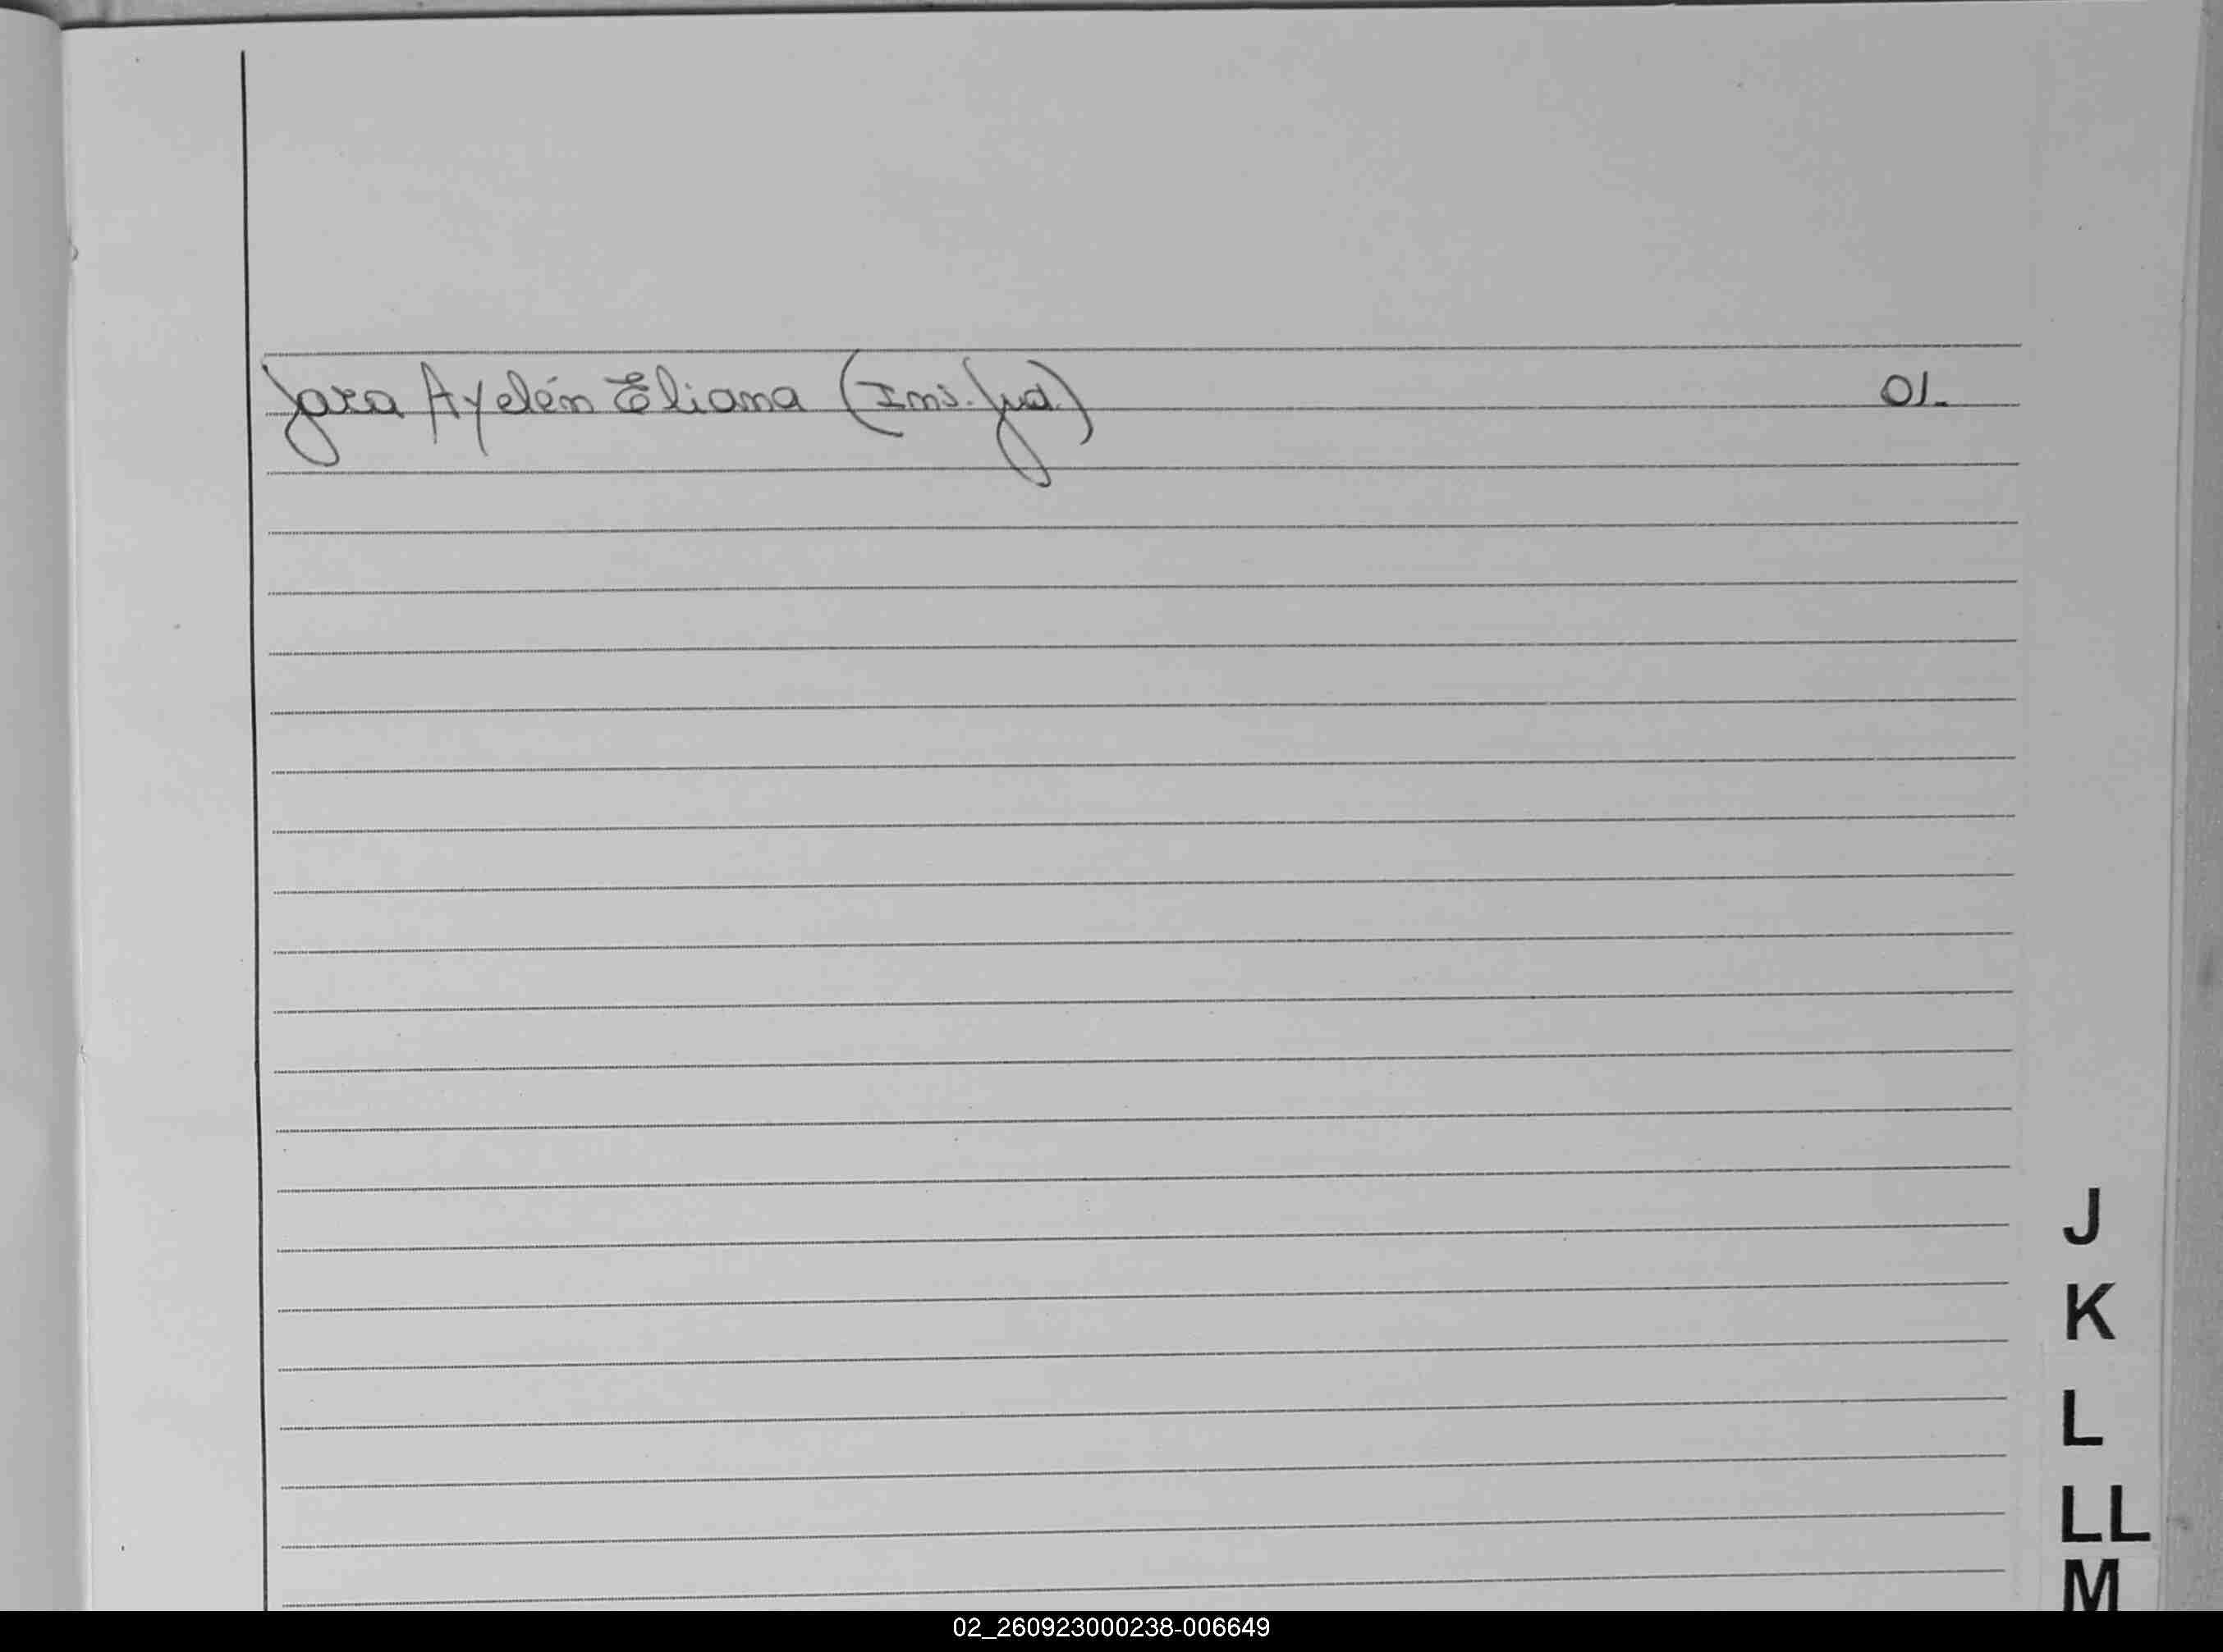 Jara Ayelén Eliana (Ins. Jud.) 01.
J
K
L
LL
M
02_260923000238-006649